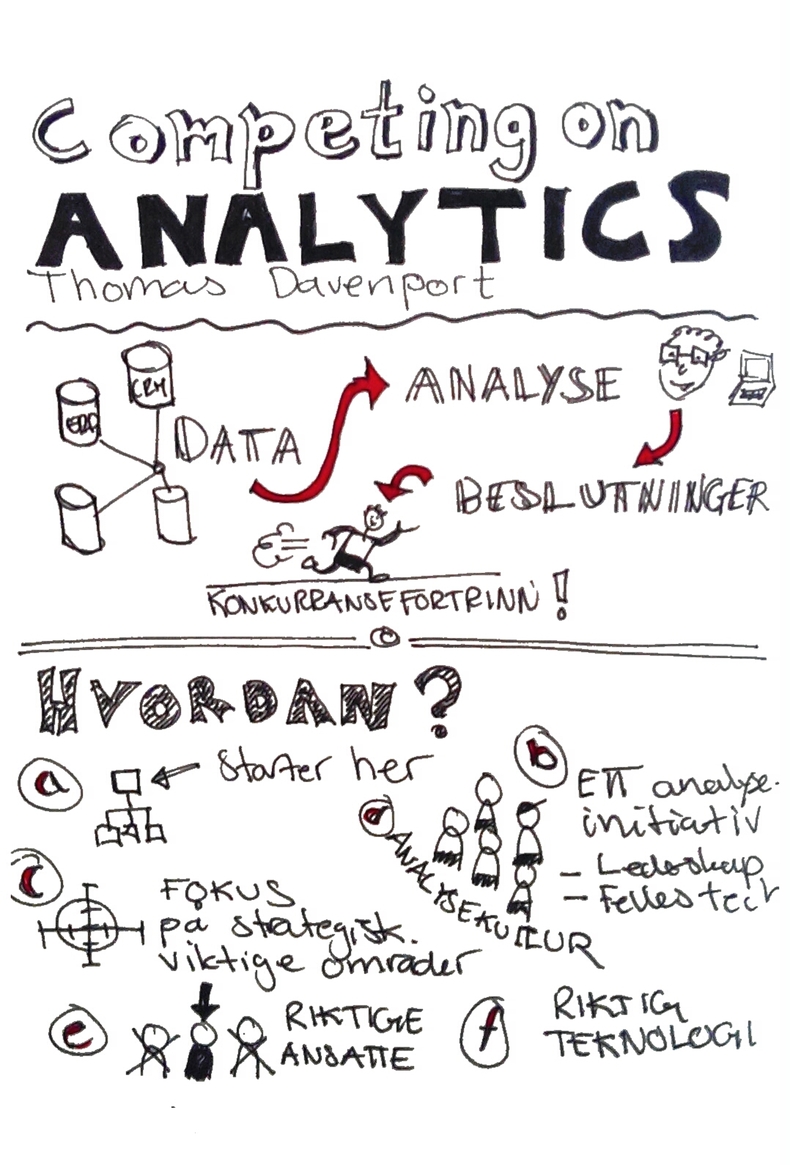 Competing on
ANALYTICS
Thomas Davenport
CRM
ERP
DATA
ANALYSE
BESLUTNINGER
KONKURRANSEFORTRINN!
HVORDAN?
a
starter her
b
ETT analyse-
initiativ
- Ledelskap
- Felles tech
c
FOKUS
på strategisk.
viktige områder
d
ANALYSEKULTUR
e
RIKTIGE
ANSATTE
f
RIKTIG
TEKNOLOGI